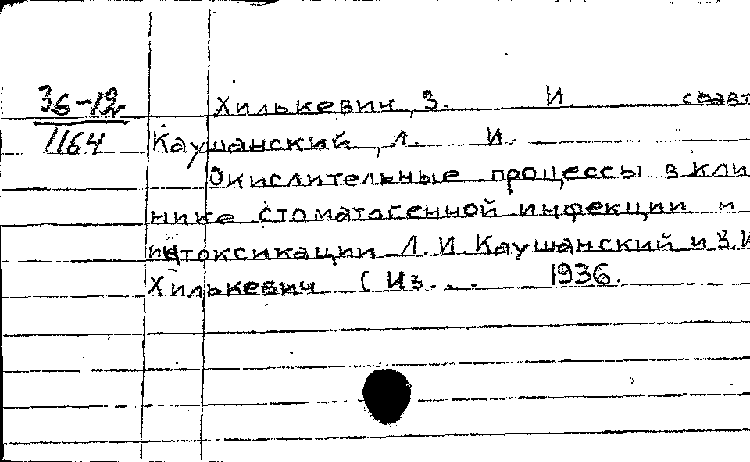 36-12
1164
Хилькевич, З. И соавт
Каушанский, Л. И.
Окислительные процессы в кли
нике стоматогенной инфекции и
интоксикации Л. И. Каушанский и З. И
Хилькевич (Из... 1936.